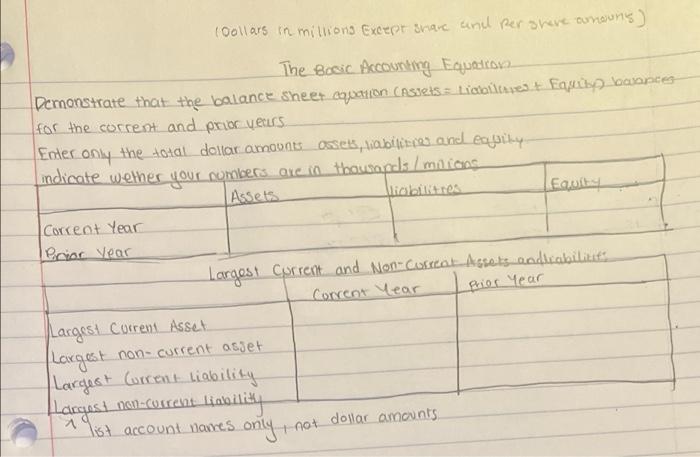 (Dollars in millions Except share and per share amounts)
The Basic Accounting Equation
Demonstrate that the balance sheet equation (Assets = Liabilities + Equity) balances
for the current and prior years
Enter only the total dollar amounts assets, liabilities and equity
indicate wether your numbers are in thousands/milions
Assets liabilitres Equity
Corrent Year
Prior Year
Largest Current and Non-Current Assets and liabilities
Corrent Year Prior Year
Largest Current Asset
Largest non-current asset
Largest Current Liability
Largest non-current liability
* list account names only, not dollar amounts